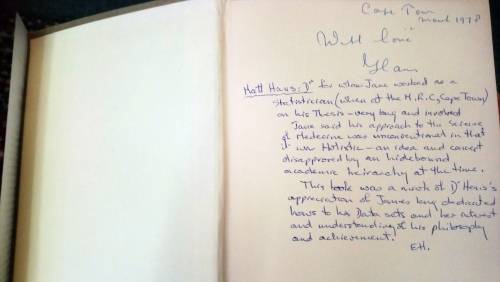 Cape Town
March 1978
With love
Hans
Matt Haus: Dr for whom Jane worked as a
statistician (when at the M.R.C, Cape Town)
on his Thesis - very long and involved
Jane said his approach to the Science
of Medecine was unconventional in that
it was Holistic - an idea and concept
disapproved by an hidebound
academic heirarchy at the time.
This book was a mark of Dr Haus's
appreciation of Janes long dedicated
hours to his Data sets and her interest
and understanding of his philosophy
and achievement.
EH.